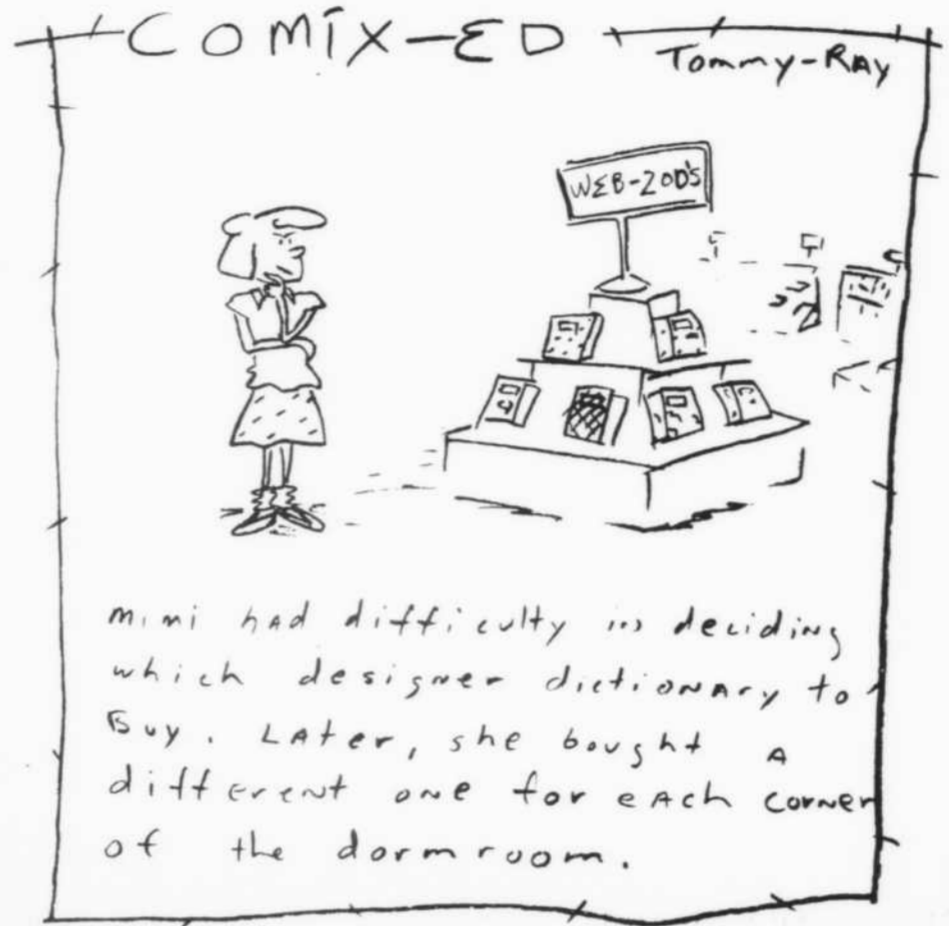 COMIX-ED
Tommy-RAY
WEB-ZOD'S
mimi had difficulty in deciding
which designer dictionary to
Buy. LAter, she bought A
different one for each corner
of the dormroom.